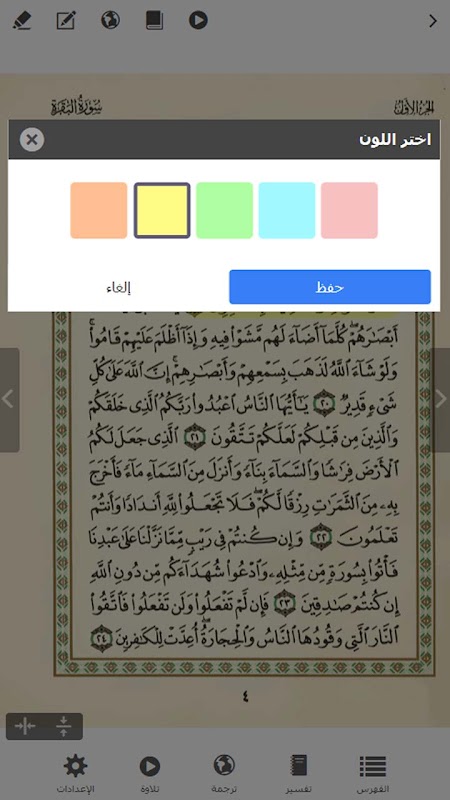 سورة البقرة
الجزء الأول
اختر اللون
حفظ
إلغاء
أَبْصَٰرَهُمْ ۖ كُلَّمَآ أَضَآءَ لَهُم مَّشَوْا۟ فِيهِ وَإِذَآ أَظْلَمَ عَلَيْهِمْ قَامُوا۟ ۚ
وَلَوْ شَآءَ ٱللَّهُ لَذَهَبَ بِسَمْعِهِمْ وَأَبْصَٰرِهِمْ ۚ إِنَّ ٱللَّهَ عَلَىٰ كُلِّ
شَىْءٍ قَدِيرٌ ٢٠ يَٰٓأَيُّهَا ٱلنَّاسُ ٱعْبُدُوا۟ رَبَّكُمُ ٱلَّذِى خَلَقَكُمْ
وَٱلَّذِينَ مِن قَبْلِكُمْ لَعَلَّكُمْ تَتَّقُونَ ٢١ ٱلَّذِى جَعَلَ لَكُمُ
ٱلْأَرْضَ فِرَٰشًا وَٱلسَّمَآءَ بِنَآءً وَأَنزَلَ مِنَ ٱلسَّمَآءِ مَآءً فَأَخْرَجَ
بِهِۦ مِنَ ٱلثَّمَرَٰتِ رِزْقًا لَّكُمْ ۖ فَلَا تَجْعَلُوا۟ لِلَّهِ أَندَادًا وَأَنتُمْ
تَعْلَمُونَ ٢٢ وَإِن كُنتُمْ فِى رَيْبٍ مِّمَّا نَزَّلْنَا عَلَىٰ عَبْدِنَا
فَأْتُوا۟ بِسُورَةٍ مِّن مِّثْلِهِۦ وَٱدْعُوا۟ شُهَدَآءَكُم مِّن دُونِ ٱللَّهِ
إِن كُنتُمْ صَٰدِقِينَ ٢٣ فَإِن لَّمْ تَفْعَلُوا۟ وَلَن تَفْعَلُوا۟ فَٱتَّقُوا۟
ٱلنَّارَ ٱلَّتِى وَقُودُهَا ٱلنَّاسُ وَٱلْحِجَارَةُ ۖ أُعِدَّتْ لِلْكَٰفِرِينَ ٢٤
٤
الفهرس
تفسير
ترجمة
تلاوة
الإعدادات